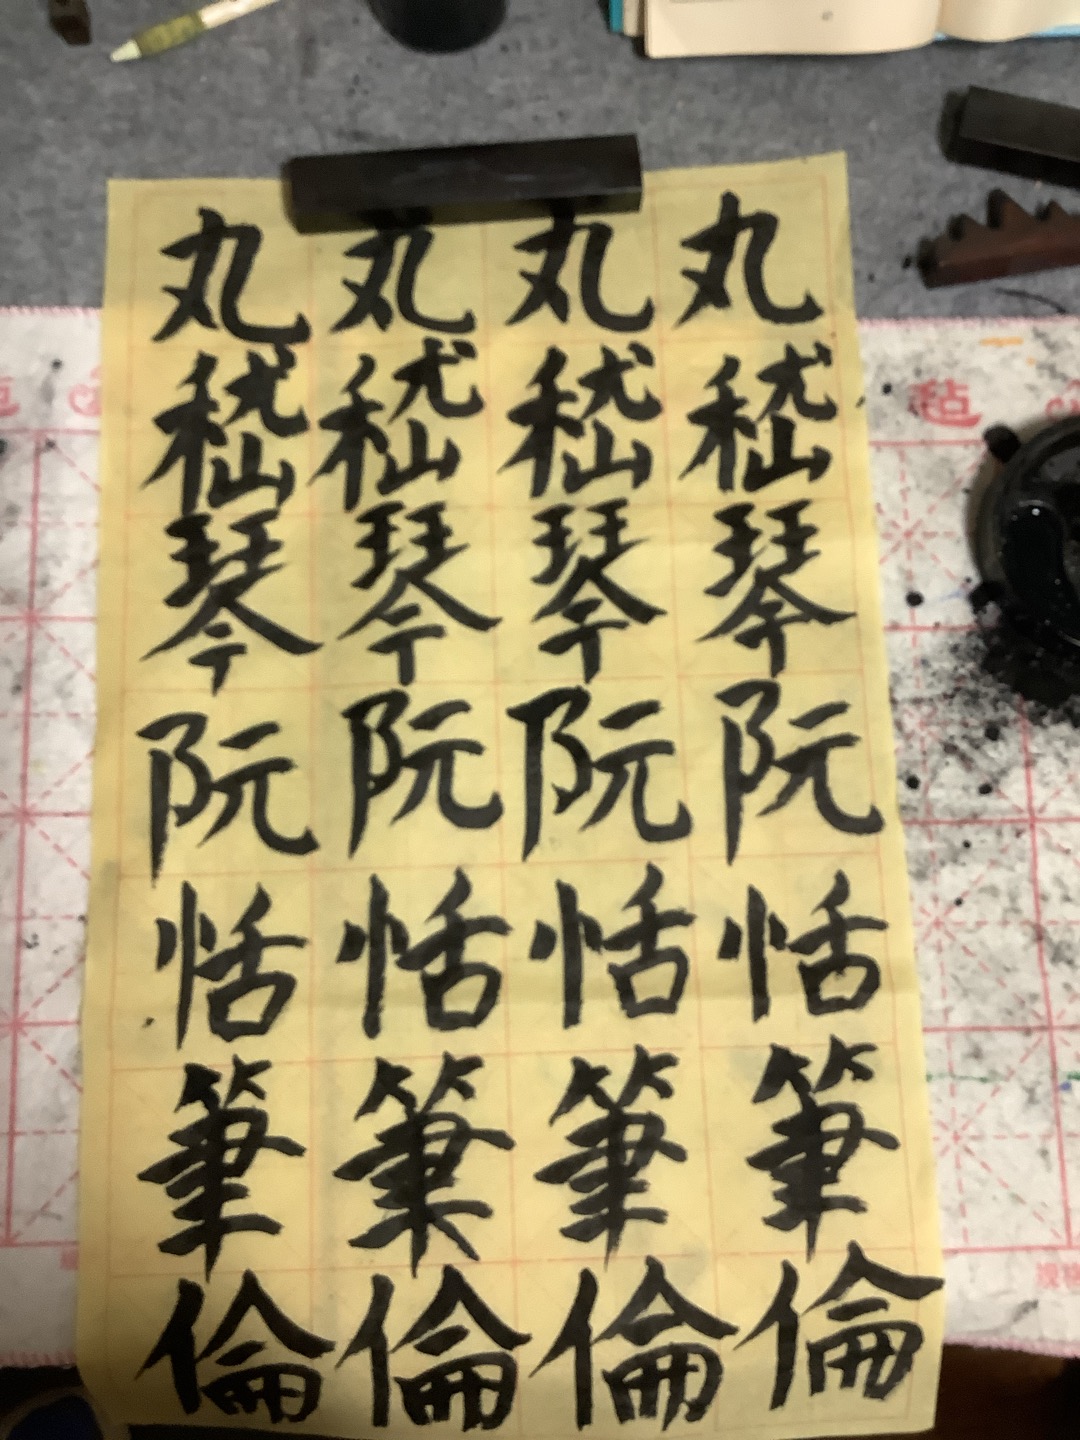 丸嵇琴阮恬筆倫
丸嵇琴阮恬筆倫
丸嵇琴阮恬筆倫
丸嵇琴阮恬筆倫
毡